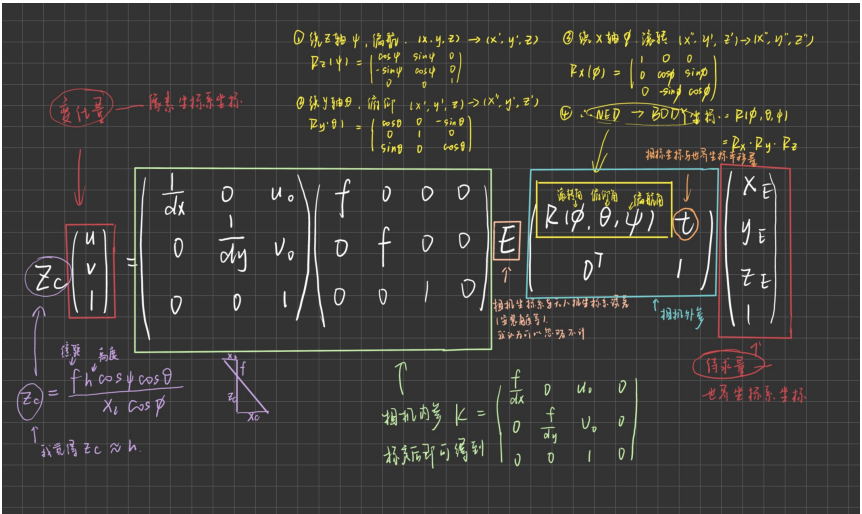 ① 绕Z轴ψ,偏航. (x,y,z) → (x',y',z)
Rz(ψ) = ( cosψ sinψ 0
-sinψ cosψ 0
0 0 1 )
② 绕y轴θ,俯仰 (x',y',z) → (x'',y',z')
Ry(θ) = ( cosθ 0 -sinθ
0 1 0
sinθ 0 cosθ )
③ 绕X轴φ 滚转 (x'',y',z') → (x'',y'',z'')
Rx(φ) = ( 1 0 0
0 cosφ sinφ
0 -sinφ cosφ )
④ NED → BODY坐标: R(φ,θ,ψ)
= Rx·Ry·Rz
变化量 — 像素坐标系坐标
相机坐标与世界坐标平移量
滚转角 俯仰角 偏航角
Zc ( u
v
1 ) = ( 1/dx 0 u₀
0 1/dy v₀
0 0 1 ) ( f 0 0 0
0 f 0 0
0 0 1 0 ) E ( R(φ,θ,ψ) t
0ᵀ 1 ) ( xE
yE
zE
1 )
相机坐标系与无人机坐标系误差
(安装角度等)
可以忽略不计
相机外参
待求量
世界坐标系坐标
焦距 高度
Zc = f h cosψ cosθ / x₁ cosφ
我觉得 Zc ≈ h.
x₁ f
Zc
Xc
相机内参 K = ( f/dx 0 u₀ 0
0 f/dy v₀ 0
0 0 1 0 )
标定后即可得到